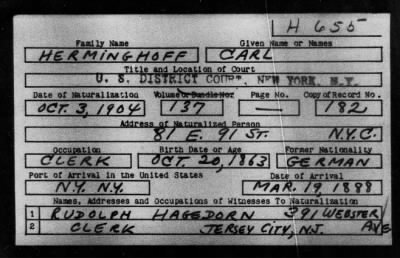 H 655
Family Name Given Name or Names
HERMINGHOFF CARL
Title and Location of Court
U. S. DISTRICT COURT, NEW YORK, N.Y.
Date of Naturalization Volume or Bundle No. Page No. Copy of Record No.
OCT. 3, 1904 137 — 182
Address of Naturalized Person
81 E. 91 ST. N.Y.C.
Occupation Birth Date or Age Former Nationality
CLERK OCT. 20, 1863 GERMAN
Port of Arrival in the United States Date of Arrival
N.Y. N.Y. MAR. 19, 1888
Names, Addresses and Occupations of Witnesses To Naturalization
1 RUDOLPH HAGEDORN 391 WEBSTER
2 CLERK JERSEY CITY, N.J. AVE